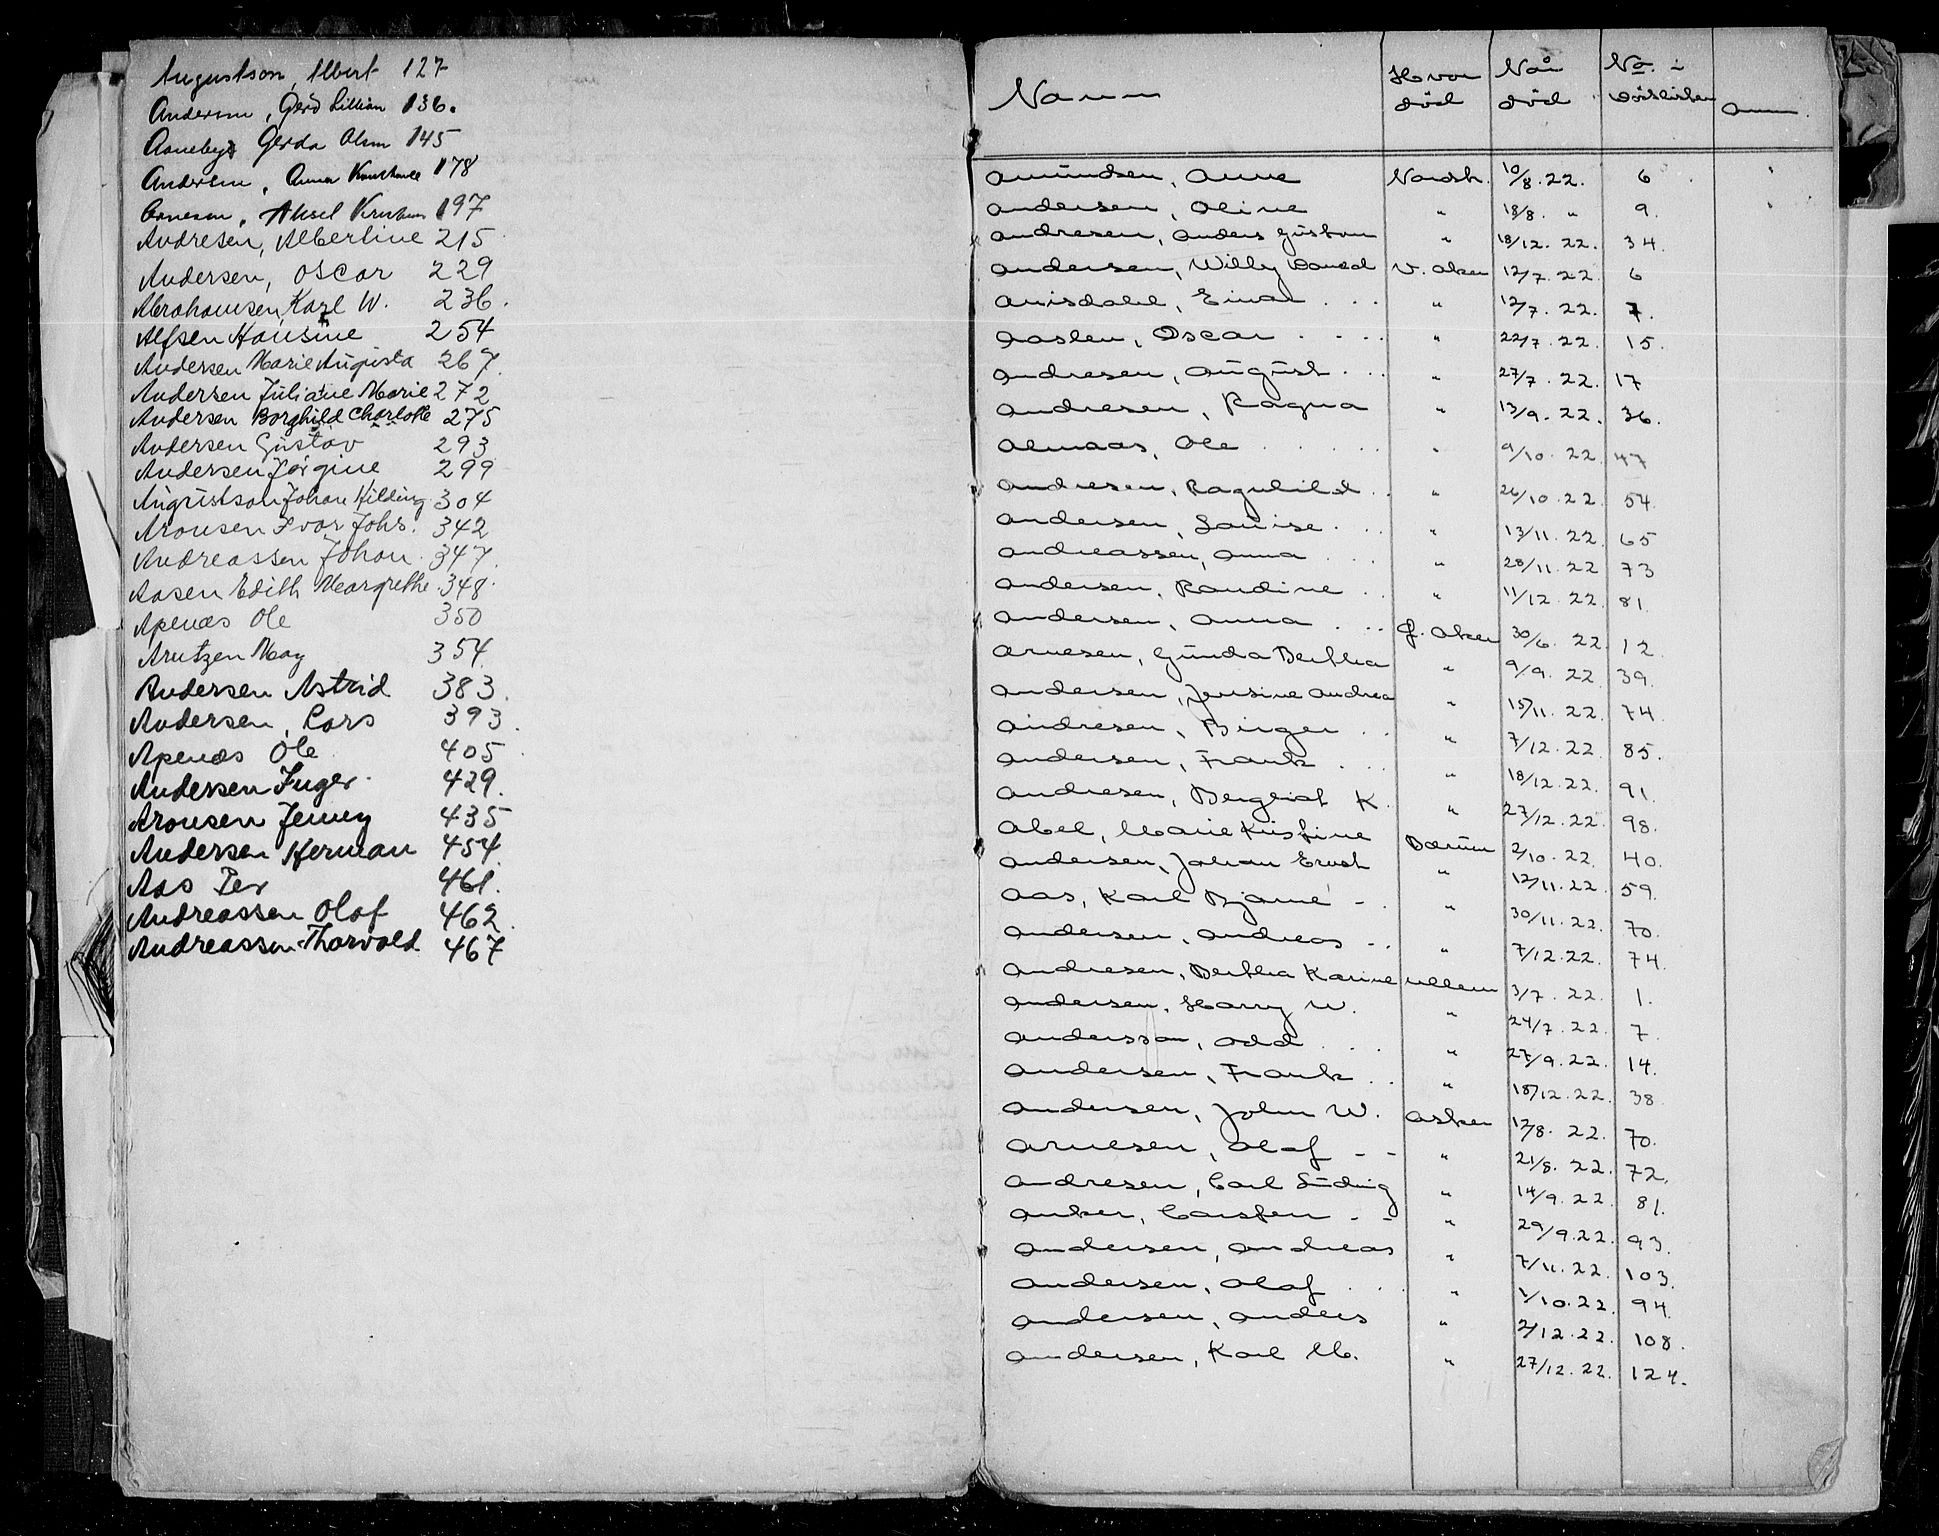 Augustson, Albert 127
Andersen, Gerd Lillian 136.
Aaneby, Gerda Olsen 145
Andersen, Anna Konstanse 178
Arnesen, Aksel Kristian 197
Andresen, Albertine 215
Andersen, Oscar 229
Abrahamsen, Karl W. 236.
Alfsen Hansine 254
Andersen Marie Augusta 267.
Andersen Juliane Marie 272
Andersen Borghild Charlotte 275
Andersen Gustav 293
Andersen Jørgine 299
Augustson Johan Hilding 304
Aronsen Ivar Johs. 342
Andreassen Johan 347.
Aasen Edith Margrethe 348.
Apenæs Ole 350
Arntzen May 354.
Andersen Astrid 383.
Andersen, Lars 393.
Apenæs Ole 405
Andersen Inger 429.
Aronsen Jenny 435
Andersen Herman 454.
Aas Per 461.
Andreassen Olaf 462.
Andreassen Thorvald 467
Navn Hvor død Når død No. i dødslisten Anm.
Amundsen, Anne Nordstr. 10/8.22. 6
Andersen, Oline " 18/8. " 9.
Andresen, Anders Gustav " 18/12.22. 34.
Andersen, Willy Daniel V. Aker 12/7.22. 6
Anisdahl, Einar . . . " 12/7.22. 7.
Aaslen, Oscar . . . . " 22/7.22. 15.
Andresen, August . . . " 27/7.22. 17
Andresen, Ragna " 13/9.22. 36.
Almaas, Ole . . . . . " 9/10.22. 47
Andresen, Ragnhild . . " 26/10.22 54.
Andersen, Louise . . . " 13/11.22. 65
Andreassen, Anna . . . " 28/11.22 73
Andersen, Randine . . " 11/12.22. 81.
Andersen, Anna . . . Ø. Aker 30/6.22 12.
Arnesen, Gunda Berthea " 9/9.22 39.
Andersen, Jensine Andrea " 15/11.22. 74.
Andresen, Birger . . " 7/12.22. 85.
Andersen, Frank . . . " 18/12.22. 91.
Andresen, Bergliot K. " 27/12.22. 98.
Abel, Marie Kristine Bærum 2/10.22. 40.
Andersen, Johan Ernst " 12/11.22. 59.
Aas, Karl Bjarne - . " 30/11.22. 70.
Andersen, Andreas - . " 7/12.22. 74.
Andresen, Berthea Karine Ullern 3/7.22. 1.
Andersen, Harry W. " 24/7.22. 7.
Andersson, Odd . . . " 27/9.22. 14.
Andersen, Frank . . " 18/12.22. 38
Andersen, John W. Asker 12/8.22. 70.
Arnesen, Olaf - - " 21/8.22. 72.
Andresen, Carl Ludvig " 14/9.22. 81.
Anker, Carsten - - " 29/9.22. 93.
Andersen, Andreas " 7/11.22. 103.
Andersen, Olaf . . . " 1/10.22. 94.
Andersen, Anders " 2/12.22. 108.
Andersen, Karl M. " 27/12.22. 124.